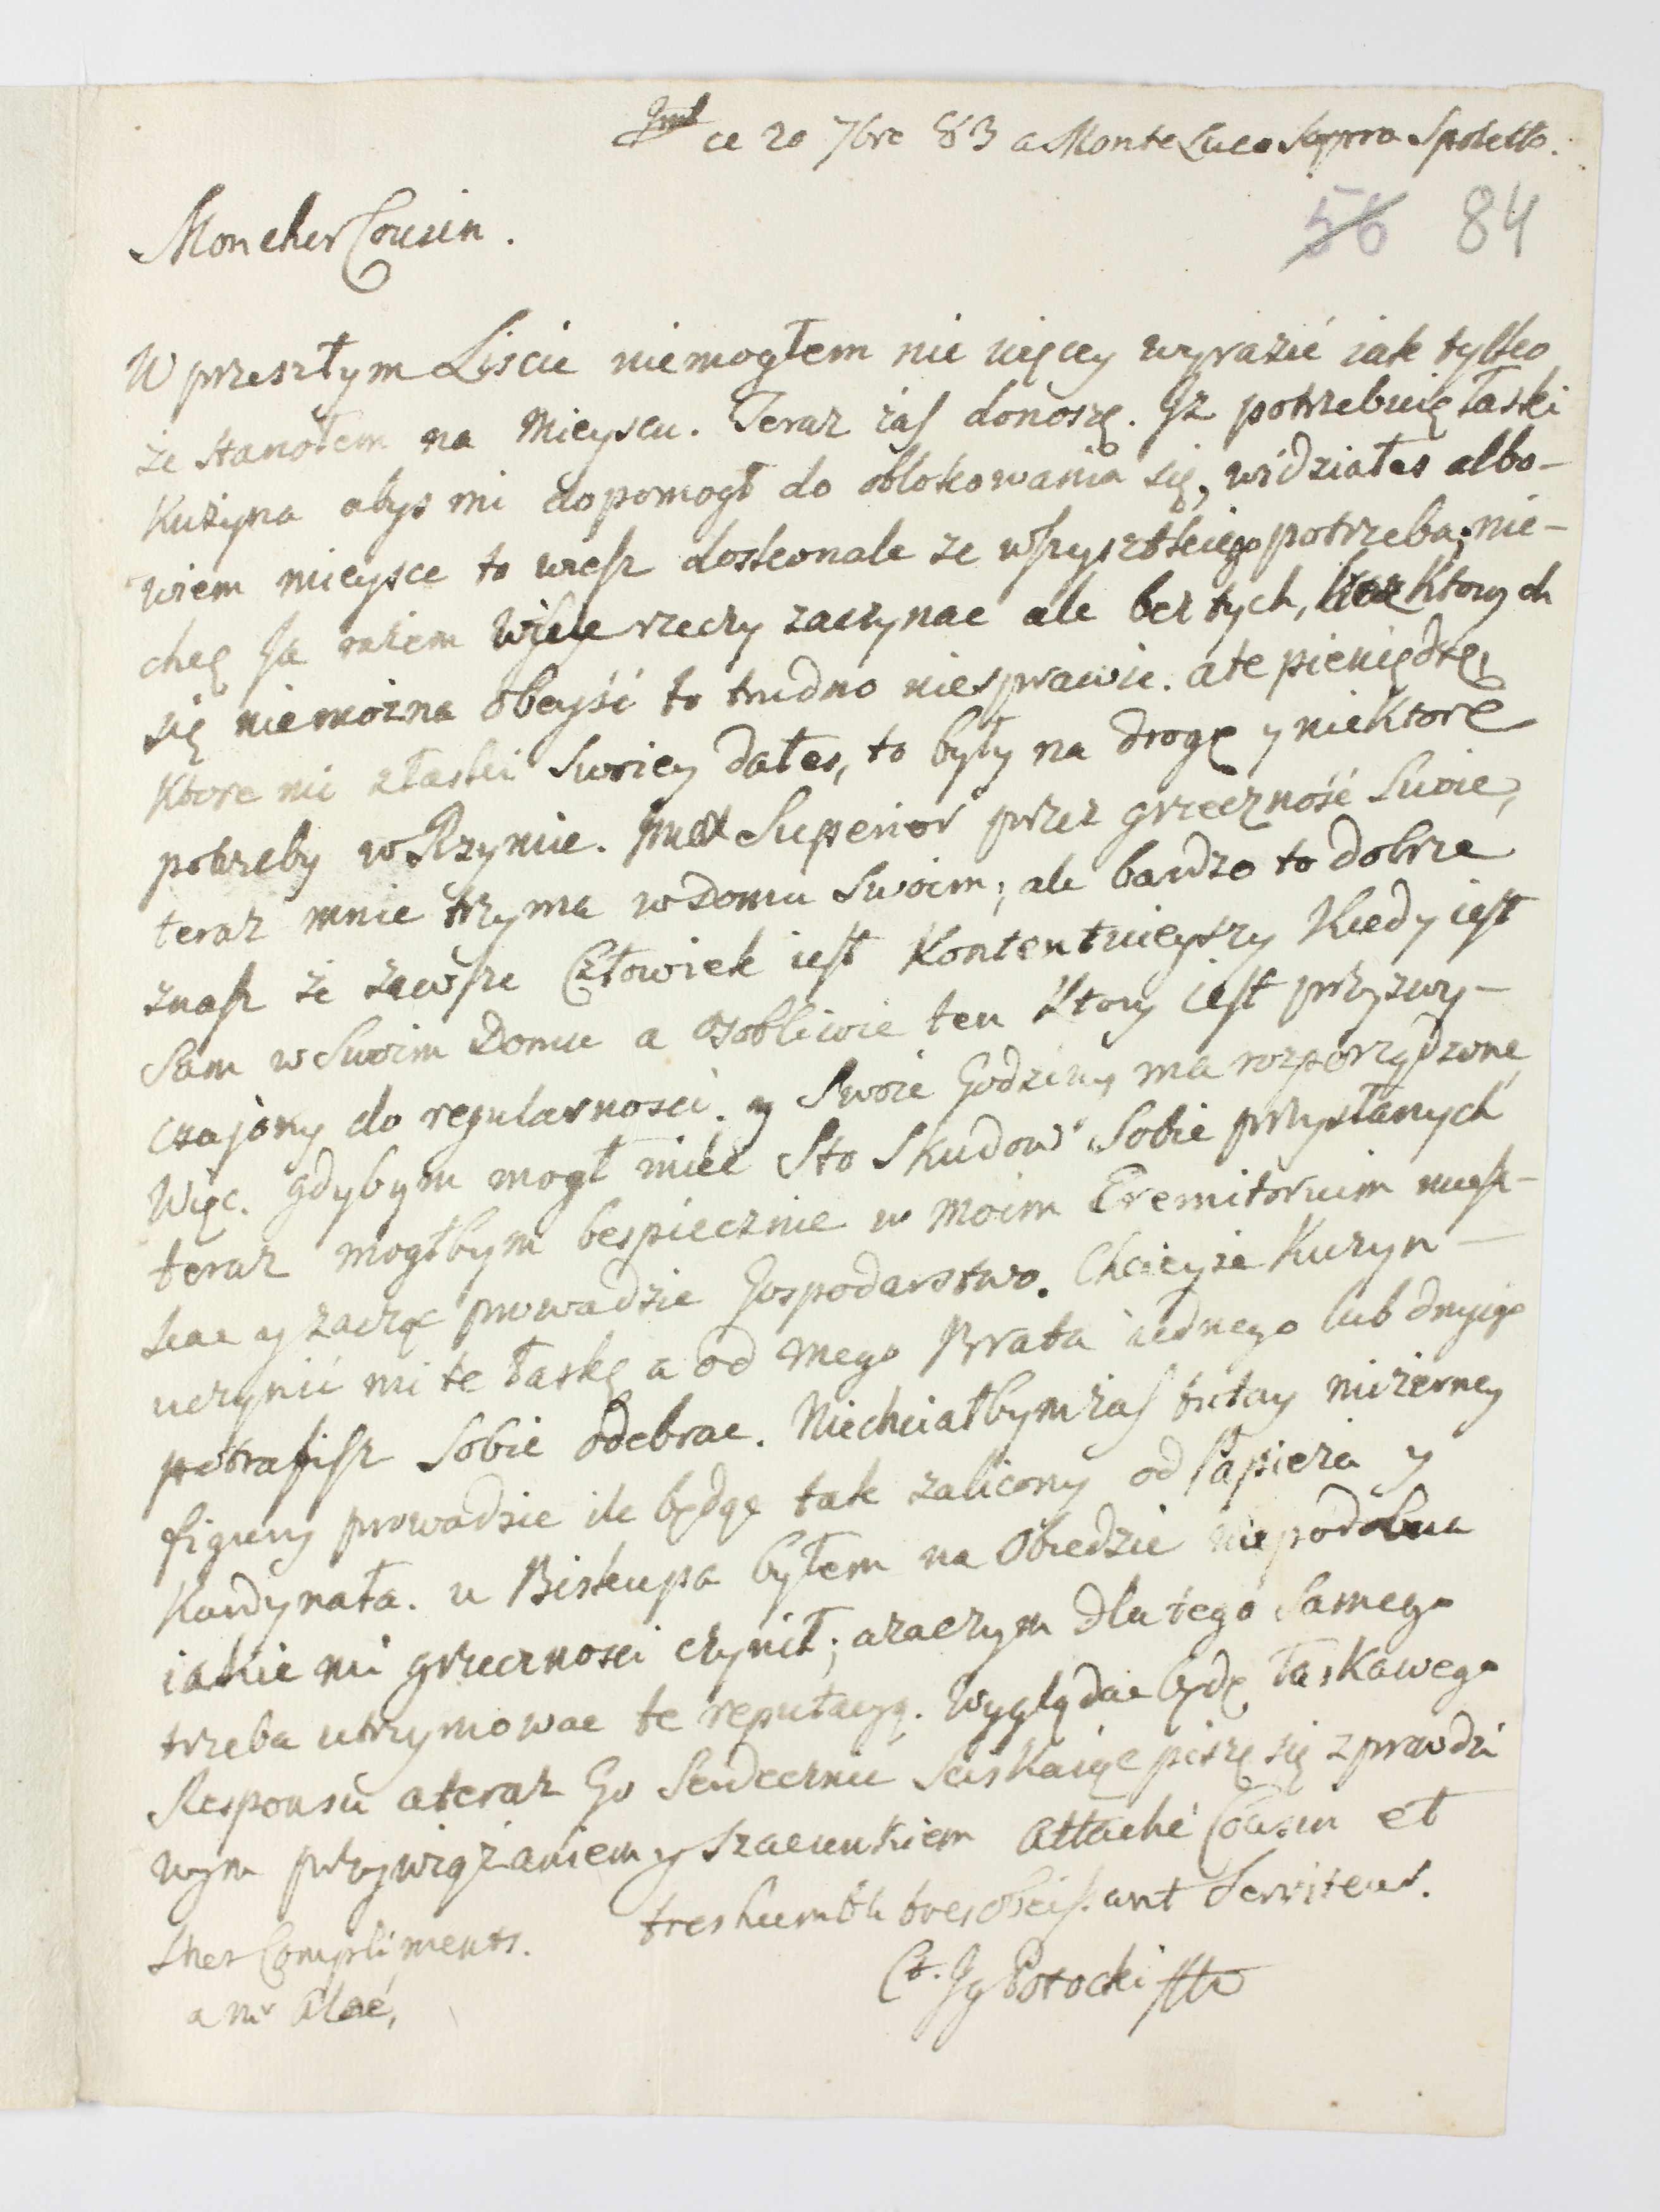 ce 20 7bre 83 a Monte Luco Sopra Spoletto.
56 84
Mon cher Cousin.
W przeszłym Liscie niemogłem nic więcey wyrazić iak tylko
że stanołem na Mieyscu. Teraz zaś donoszę. Iż potrzebuię łaski
Kuzyna abys mi dopomogł do oblokowania się, widziałes albo-
wiem mieysce to wiesz doskonale ze wszysztkiego potrzeba; nie-
chcę Ja razem wiele rzeczy zaczynac ale bez tych, Ktorych
się niemożna obeyść to trudno niesprawic. ate pieniędzę
Ktore mi złaski Swoiey dałes, to były na drogę y nieKtore
potrzeby w Rzymie. Superior przez grzeczność Swoię
teraz mnie trzyma w Domu Swoim; ale bardzo to dobrze
znasz że zawsze Człowiek iest Kontentnieyszy Kiedy iest
Sam w Swoim Domu a osobliwie ten Ktory iest przyzwy-
czajony do regularnosci. y Swoie Godziny ma rozporządzone
Więc. gdybym mogł miec Sto Skudow Sobie przysłanych
teraz mogłbym bespiecznie w moim Eremitorium miesz-
kac y zacząc prowadzic Gospodarstwo. Chcieyże Kuzyn
uczynić mi te łaskę a od mego Brata iednego lub drugigo
potrafisz Sobie odebrac. Niechciałbym zaś tutay mizerney
figury prowadzic ile będąc tak zalicony od Papieza y
Kardynała. u Biskupa byłem na Obiedzie niepodobna
iakie mi grzecznosci czynił; azaczym dla tego Samego
trzeba utrzymowac te reputacyą. Wyglądac będę łasKawego
Responsu ateraz Go Serdecznie SciskaiąC piszę się z prawdzi
wym przywiązaniem y szacunkiem Attaché Cousin et
tres humble tres obeissant Serviteur.
Compliments.
a mr
Ct. Ig Potocki